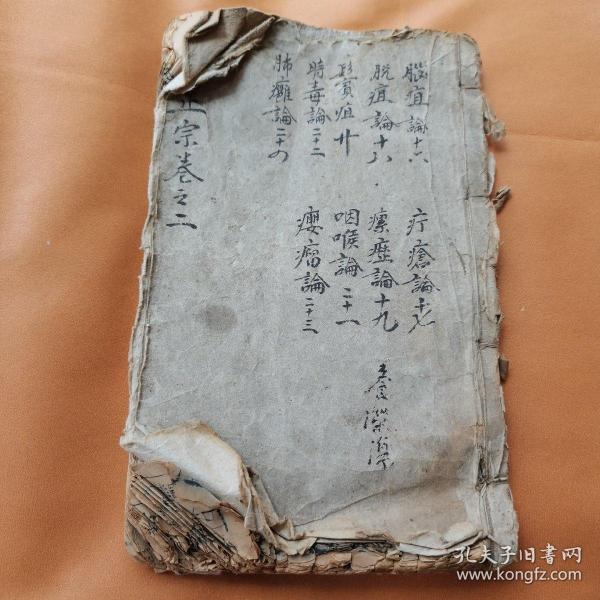 腦疽論十六
疔瘡論十七
脫疽論十八
瘰癧論十九
鬢疽廿
咽喉論二十一
時毒論二十二
癭瘤論二十三
肺癰論二十四
正宗卷之二
孔夫子旧書网
www.kongfz.com